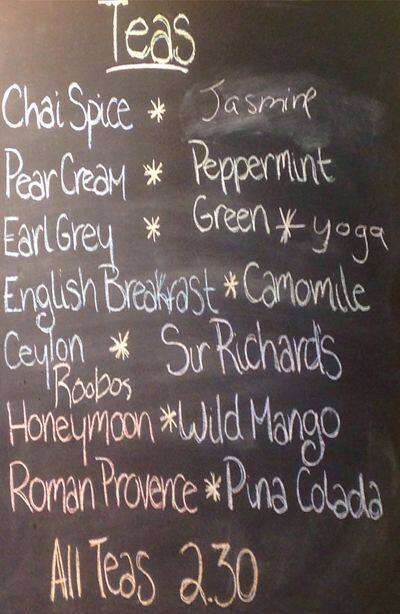 Teas
Chai Spice * Jasmine
Pear Cream * Peppermint
Earl Grey * Green * yoga
English Breakfast * Camomile
Ceylon * Sir Richards
Roobos
Honeymoon * Wild Mango
Roman Provence * Pina Colada
All Teas 2.30